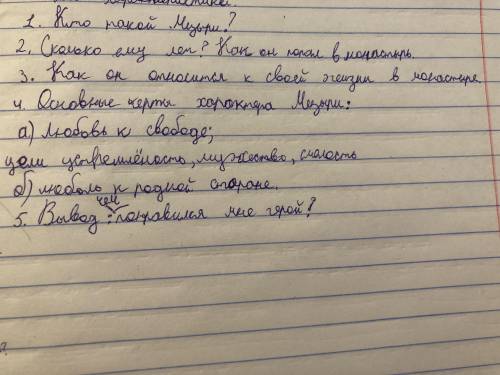 характеристика.
1. Кто такой Мцыри?
2. Сколько ему лет? Как он попал в монастырь.
3. Как он относится к своей жизни в монастыре.
4. Основные черты характера Мцыри:
а) любовь к свободе;
цели устремлёность, мужество, смелость
б) любовь к родной стороне.
5. Вывод: чем понравился мне герой?